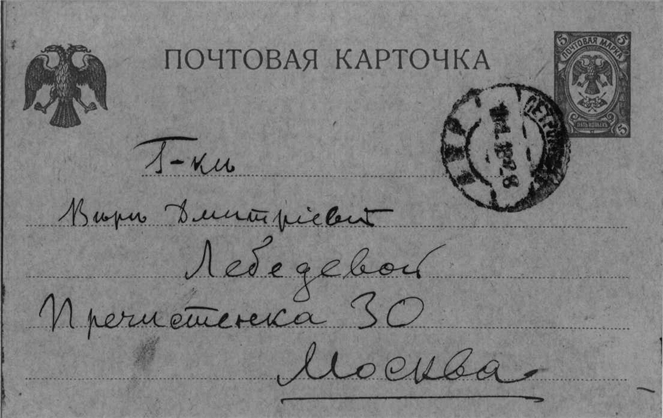 ПОЧТОВАЯ КАРТОЧКА
5 ПОЧТОВАЯ МАРКА 5
5 ПЯТЬ КОПѢЕКЪ 5
Г-жѣ
Вѣрѣ Дмитріевнѣ
Лебедевой
Пречистенка 30
Москва